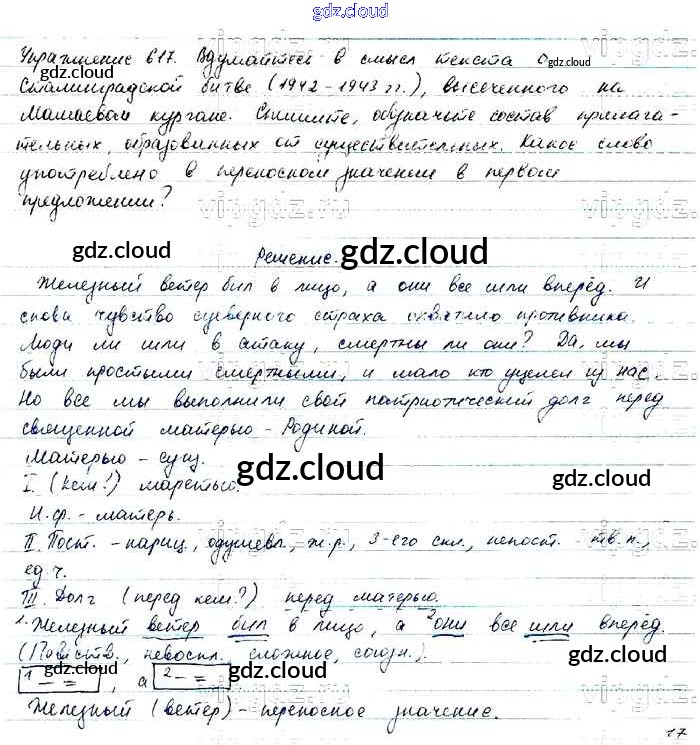 gdz.cloud
Упражнение 617. Вдумайтесь в смысл текста о gdz.cloud
Сталинградской битве (1942-1943 гг.), высеченного на
gdz.cloud
Мамаевом кургане. Спишите, обозначьте состав прилага-
тельных, образованных от существительных. Какое слово
употреблено в переносном значении в первом
предложении?
vipgdz.ru
gdz.cloud Решение. gdz.cloud
Железный ветер бил в лицо, а они все шли вперёд. И
снова чувство суеверного страха охватило противника.
Люди ли шли в атаку, смертны ли они? Да, мы
были простыми смертными, и мало кто уцелел из нас.
Но все мы выполнили свой патриотический долг перед
священной матерью - Родиной.
Матерью - сущ.
gdz.cloud gdz.cloud
I. (Кем?) маретью.
Н.ф. - матерь.
II. Пост. - нариц., одушевл., ж.р., 3-его скл., непост. тв.п.,
ед.ч.
III. Долг (перед кем?) перед матерью.
1. Железный ветер бил в лицо, а 2они все шли вперёд.
(Повеств., невоскл., сложное, союзн.).
gdz.cloud gdz.cloud
1 - = , а 2 - =
Железный (ветер) - переносное значение.
17